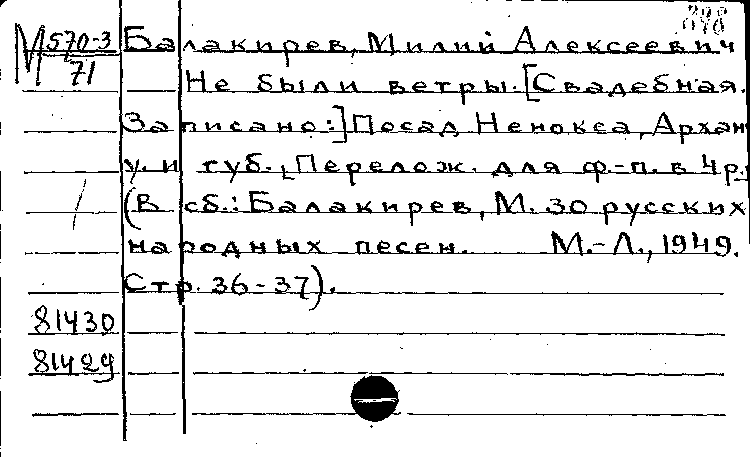 М 570-3
71
Балакирев, Милий Алексеевич
Не были ветры. [Свадебная.
Записано:] Посад Ненокса,Архан
у. и губ. [Перелож. для ф.-п. в 4 р.
(В сб.: Балакирев, М. 30 русских
народных песен. М.-Л., 1949.
Стр. 36-37).
81430
81429